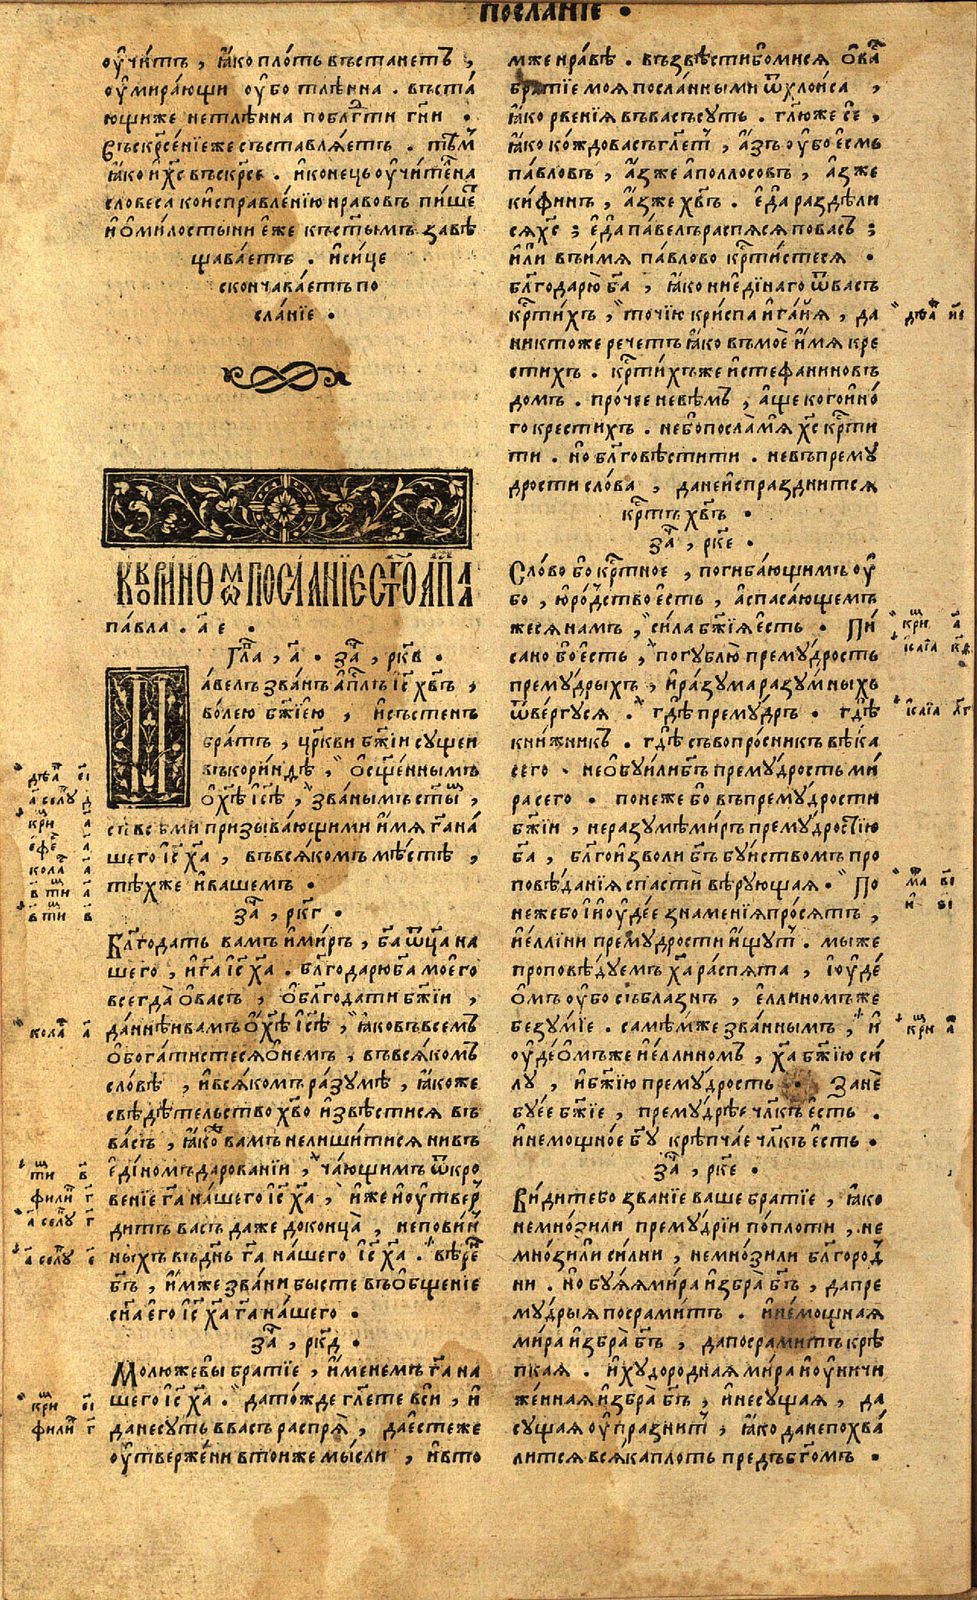 посланїе •
оу҆чи́тъ , ꙗ҆́ко пло́ть въстане́тъ ,
оу҆мира́ющи оу҆́бо тлѣ́нна . въста́
ющиже нетлѣ́нна поблг҃ти гн҃и •
Въскр҃се́нїеже съставлѧ́етъ . тѣ́мъ
ꙗ҆́ко и҆ хс҃ въскр҃се . и҆коне́цъ оу҆чи́тел̾на
словеса̀ коисправле́нїю нра́вовъ пи́шетъ
и҆ ѡ҆ми́лостыни е҆́же къст҃ымъ завѣ
щава́етъ . и҆си́це
сконча́ваетъ по
сла́нїе •
Къ корі́нѳомъ посла́нїе ст҃го ап҃ла
па́вла . а҃ е •
Гла҃ , а҃ • за҃ , рк҃в •
Па́велъ зва́нъ ап҃лъ і҆с҃ хв҃ъ ,
во́лею бж҃їею , и҆състе́нъ
бра́тъ , цр҃кви бж҃їи су́щеи
въкори́нѳѣ , ѡ҆сщ҃е́ннымъ
ѡ҆ хѣ҃ і҆сѣ҃ , зва́нымъ ст҃ы́мъ ,
съ всѣ́ми призыва́ющими и҆́мѧ гд҃а на́
шего і҆с҃ ха҃ , въвсѧ́комъ мѣ́стѣ ,
тѣ́хже и҆ва́шемъ •
за҃ , рк҃г •
Блг҃ода́ть ва́мъ и҆ми́ръ , ѿ бг҃а ѻ҆ц҃а на
шего , и҆гд҃а і҆с҃ ха҃ . благодарю̀ бг҃а моего̀
всегда̀ ѡ҆ва́съ , ѡ҆блг҃ода́ти бж҃їи ,
да́ннѣи ва́мъ ѡ҆ хѣ҃ і҆сѣ҃ , ꙗ҆́ковъвсе́мъ
ѡ҆богати́стесѧ ѡ҆не́мъ , въвсѧ́комъ
сло́вѣ , и҆всѧ́комъ ра́зумѣ , ꙗ҆́коже
свѣдѣ́тельство хв҃о и҆звѣсти́сѧ въ
ва́съ , ꙗ҆́ко ва́мъ нелиши́тисѧ нивъ
е҆ди́номъдарова́нїи , ча́ющимъ ѿкро
ве́нїе гд҃а на́шего і҆с҃ ха҃ , и҆́же и҆оу҆тверь
ди́тъ ва́съ да́же доконца̀ , непови́н
ныхъ въдн҃ь гд҃а на́шего і҆с҃ ха҃ . вѣ́ренъ
бг҃ъ , и҆́мже зва́ни бы́сте въѻ҆бще́нїе
сн҃а є҆го̀ і҆с҃ ха҃ гд҃а на́шего •
за҃ , рк҃д •
Молю́жевы бра́тїе , и҆́менемъ гд҃а на
шего і҆с҃ ха҃ . дато́жде гл҃ете вси́ , и҆
данесу́ть ввасъ ра́спрѧ , дає҆сте́же
оу҆твержени втомже мы́сли , и҆вто
мже нра́вѣ . възвѣсти́бомисѧ ѡ҆ва́съ
бра́тїе моѧ̀ посла́нными ѿхло́иса ,
ꙗ҆́ко рве́нїѧ въва́съсуть . гл҃ю́же се ,
ꙗ҆́ко ко́ждовасъгл҃етъ , а҆́зъ оу҆́бо е҆́смь
па́вловъ , а҆́зже а҆поллосовъ , а҆́зже
ки́финъ , а҆́зже хв҃ъ . е҆да̀ раздѣли
сѧ хс҃ ; е҆да̀ па́велъраспѧ́сѧ пова́съ ;
и҆лѝ въи҆́мѧ па́влово кр҃ти́стесѧ •
благодарю̀ бг҃а , ꙗ҆́ко ниеди́наго ѿва́съ
кр҃ти́хъ , то́чїю кри́спа и҆га́їѧ , да
никто́же рече́тъ ꙗ҆́ко въмоѐ и҆́мѧ кре
сти́хъ . кр҃ти́хъже и҆стефани́новъ
до́мъ . про́чее невѣ́мъ , а҆́ще кого и҆но́
го крести́хъ . небопосла̀мѧ хс҃ кр҃ти
ти . но́ благовѣсти́ти . невъпрему́
дрости сло́ва , данеи҆спраздни́тсѧ
кр҃тъ хв҃ъ •
за҃ , рк҃е •
Сло́во бо кр҃тное , погиба́ющимъ оу҆́
бо , ю҆ро́дство е҆́сть , а҆спаса́ющем
жесѧ на́мъ , си́ла бж҃їѧ е҆́сть • Пи́
сано бо е҆́сть , погублю̀ прему́дрость
прему́дрыхъ , и҆ра́зума разу́мныхъ
ѿве́ргусѧ . гдѣ̀ прему́дръ • гдѣ̀
кни́жникъ . гдѣ̀ съвопро́сникъ вѣ́ка
сего̀ • неѻ҆буи́либг҃ъ прему́дрость ми́
ра сего • поне́же бо въпрему́дрости
бж҃їи , неразумѣ̀ ми́ръ прему́дростїю
бг҃а , блг҃оизво́ли бг҃ъ бу́йствомъ про
повѣ́данїѧ спастѝ вѣ́рующаѧ • По
не́жебо і҆ і҆оуде́е зна́менїѧ про́сѧтъ ,
и҆е́ллини прему́дрости и҆́щутъ . мы́же
проповѣ́дуемъ ха҃ ра́спѧта , і҆оуде́
ѡмъ оу҆́бо събла́знъ , е҆ллиномъже
безу́мїе . самѣ́мже зва́ннымъ , и҆
оуде́ѡмъже и҆е́ллиномъ , ха҃ бж҃їю си́
лу , и҆бж҃їю прему́дрость • Занѐ
бу́ее бж҃їе , прему́дрѣе чл҃къ е҆́сть .
и҆немощно́е бг҃у крѣпча́е чл҃къ е҆́сть •
за҃ , рк҃е •
Ви́дитебо зва́нїе ва́ше бра́тїе , ꙗ҆́ко
немно́зили прему́дрїи попло́ти , не
мно́зили си́лни , немно́зили благоро́д
ни . но бу́ѧѧ ми́ра и҆збра̀ бг҃ъ , дапре
му́дрыѧ посрами́тъ . и҆не́мощнаѧ
ми́ра и҆збра̀ бг҃ъ , дапосрами́тъкрѣ
пкаѧ . и҆худоро́днаѧ ми́ра и҆оуничи
же́ннаѧ и҆збра̀ бг҃ъ , и҆несу́щаѧ , да
су́щаѧ оу҆праздни́тъ , ꙗ҆́ко данепохва́
литсѧ всѧ́каплоть предъбг҃омъ •